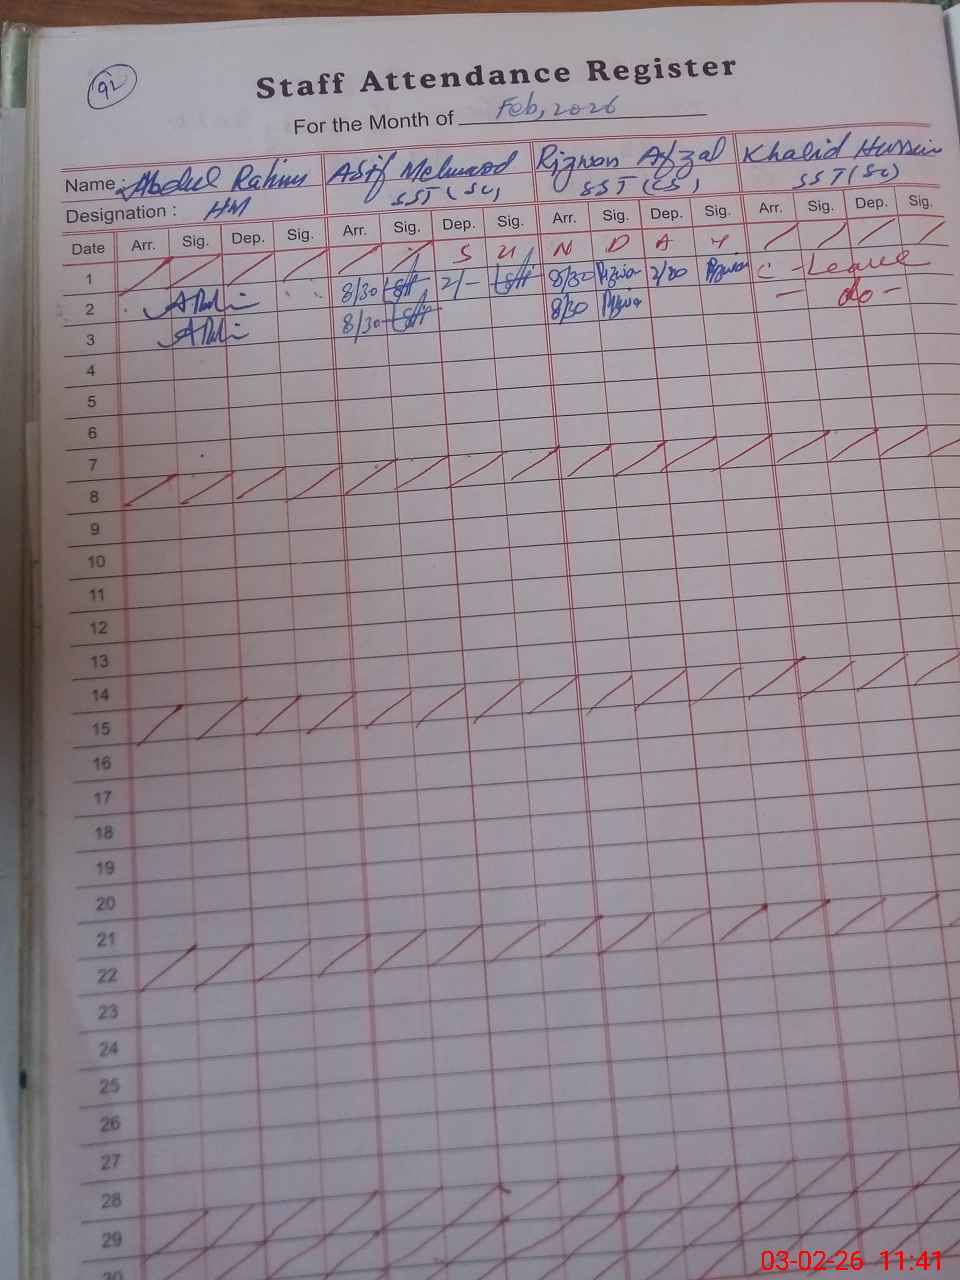 92
Staff Attendance Register
For the Month of Feb, 2026
Name : Abdul Rahim Asif Mehmood Rizwan Afzal Khalid Hussain
Designation : HM SST (Sc) SST (CS) SST (Sc)
Date Arr. Sig. Dep. Sig. Arr. Sig. Dep. Sig. Arr. Sig. Dep. Sig. Arr. Sig. Dep. Sig.
1 S U N D A Y
2 8/30 2/- 8/30 Rizwan 2/30 Rizwan C - Leave
3 8/30 8/30 Rizwan - do -
4
5
6
7
8
9
10
11
12
13
14
15
16
17
18
19
20
21
22
23
24
25
26
27
28
29
30
03-02-26 11:41